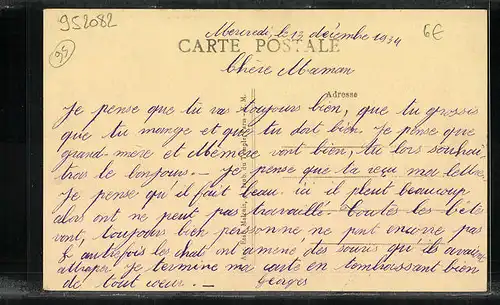 952082
95
6€
Mercredi, le 13 décembre 1934
CARTE POSTALE
Chère Maman
Adresse
Je pense que tu vas toujours bien, que tu grossis
que tu mange et que tu dort bien. Je pense que
grand-mère et Mémère vont bien, tu lors souhai-
tras le bonjours. — Je pense que ta reçu ma lettre.
Je pense qu'il fait beau. ici il pleut beaucoup
alors ont ne peut pas travaillé. Toutes les bêtes
vont, toujours bien personne ne peut encore pas
autrefois les chats ont amené des souris qu'ils avaient
attraper. Je termine ma carte en t'embrassant bien
de tout cœur. — Georges